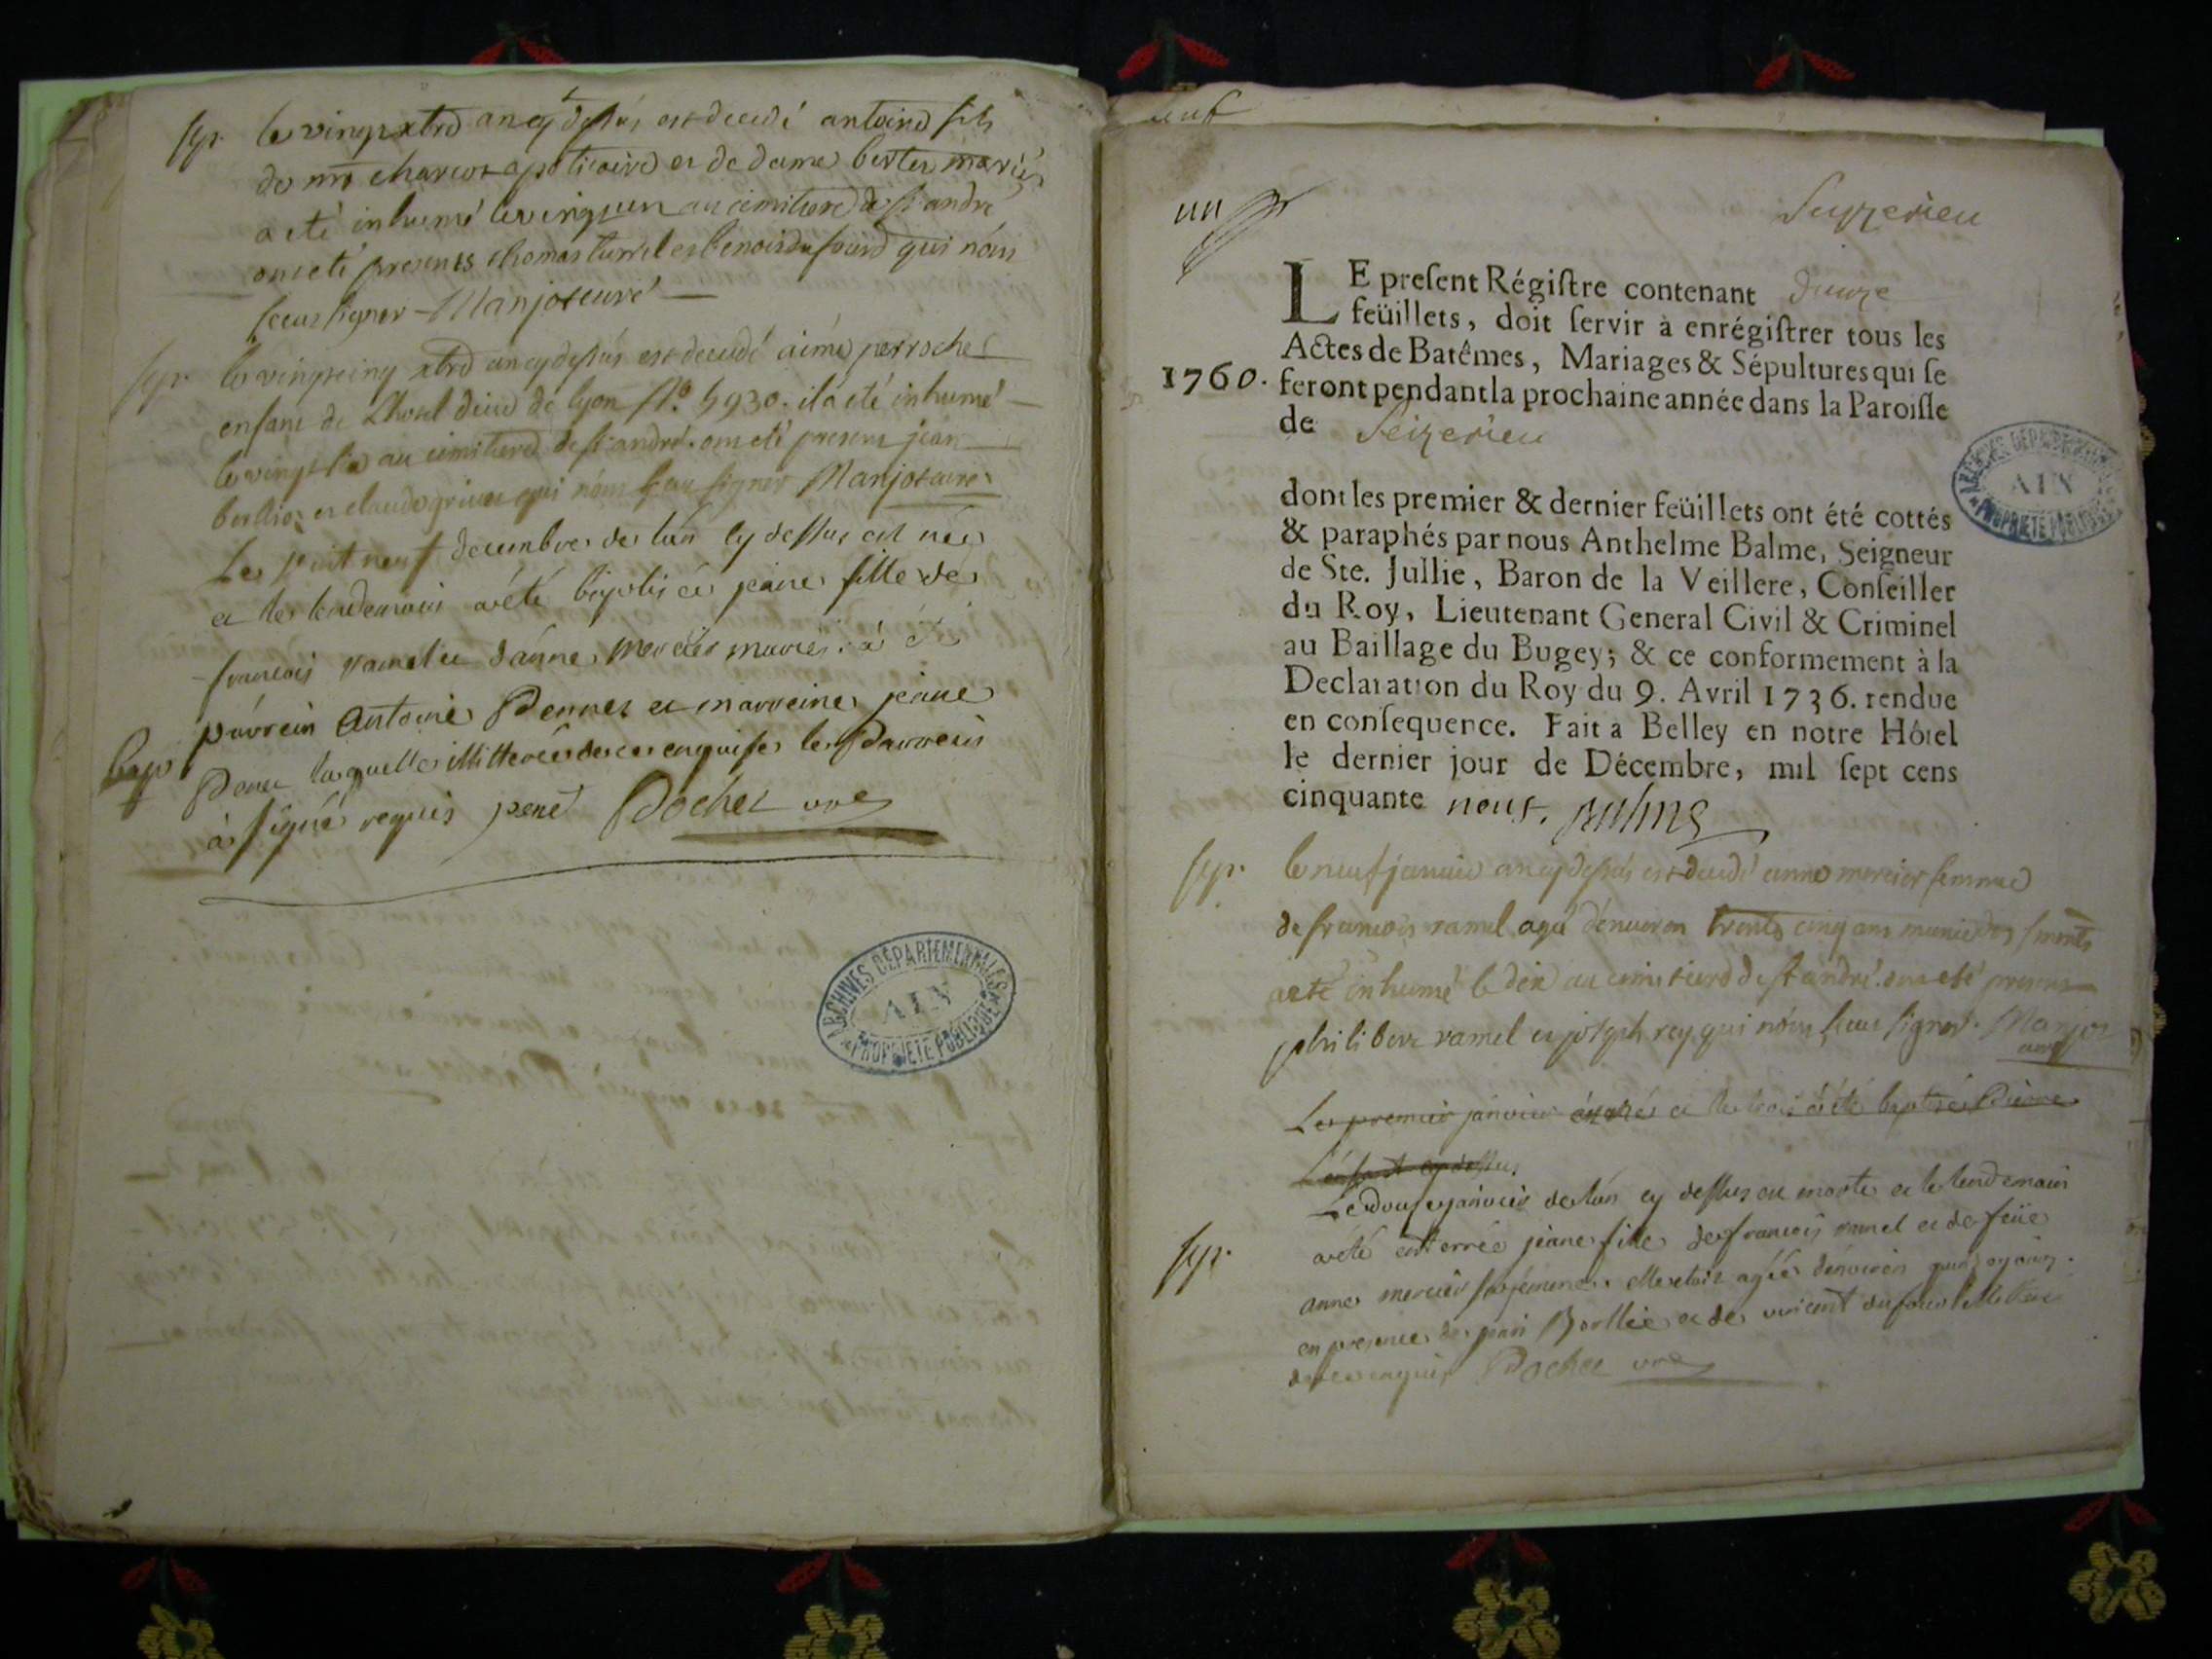 sep.
le vingt xbre an cy dessus est decedé antoine fils
de mr charcot apoticaire et de dame bertet mariés
a eté inhumé le vingt un au cimitiere de st andré
ont eté presents thomas turrel et benoit dufour qui n'ont
sceu signer Manjot curé
sep.
le vingt cinq xbre an cy dessus est decedé aimé perrochet
enfant de l'hotel dieu de lyon No. 5930. il a eté inhumé
le vingt six au cimitiere de st andré. ont eté presens jean
bertlioz et claude qui n'ont sceu signer Manjot curé
Le vint neuf decembre de l'an cy dessus est née
et le lendemain a été baptisée jeane fille de
francois ramel et d'anne mercier mariés. a été
parrein antoine et marreine jeane
bap
laquelle illitterée de ce enquise le parrein
a signé requis Pochet vre
ARCHIVES DÉPARTEMENTALES
AIN
PROPRIÉTÉ PUBLIQUE
neuf
un
Seyzerieu
LE present Régistre contenant douze
feüillets, doit servir à enrégistrer tous les
Actes de Batêmes, Mariages & Sépultures qui se
1760. feront pendant la prochaine année dans la Paroisse
de Seizerieu
ARCHIVES DÉPARTEMENTALES
AIN
PROPRIÉTÉ PUBLIQUE
dont les premier & dernier feüillets ont été cottés
& paraphés par nous Anthelme Balme, Seigneur
de Ste. Jullie, Baron de la Veillere, Conseiller
du Roy, Lieutenant General Civil & Criminel
au Baillage du Bugey; & ce conformement à la
Declaration du Roy du 9. Avril 1736. rendue
en consequence. Fait à Belley en notre Hôtel
le dernier jour de Décembre, mil sept cens
cinquante neuf. Balme
sep.
le neuf janvier an cy dessus est decedé anne mercier femme
de francois ramel agé d'environ trente cinq ans munie des sments
a eté inhumé le dix au cimitiere de st andré. ont eté presens
philibert ramel et joseph rey qui n'ont sceu signer. Manjot
curé
Le premier janvier est né et le trois a été baptisé Pierre
L'enfant cy dessus
Le douse janvier de l'an cy dessus est morte et le lendemain
sep.
a été enterrée jeane fille de francois ramel et de feüe
anne mercier sa femme. elle etoit agée d'environ quinze jours.
en presence de jean Borllie et de vincent dufour illitterés
de ce enquis Pochet vre